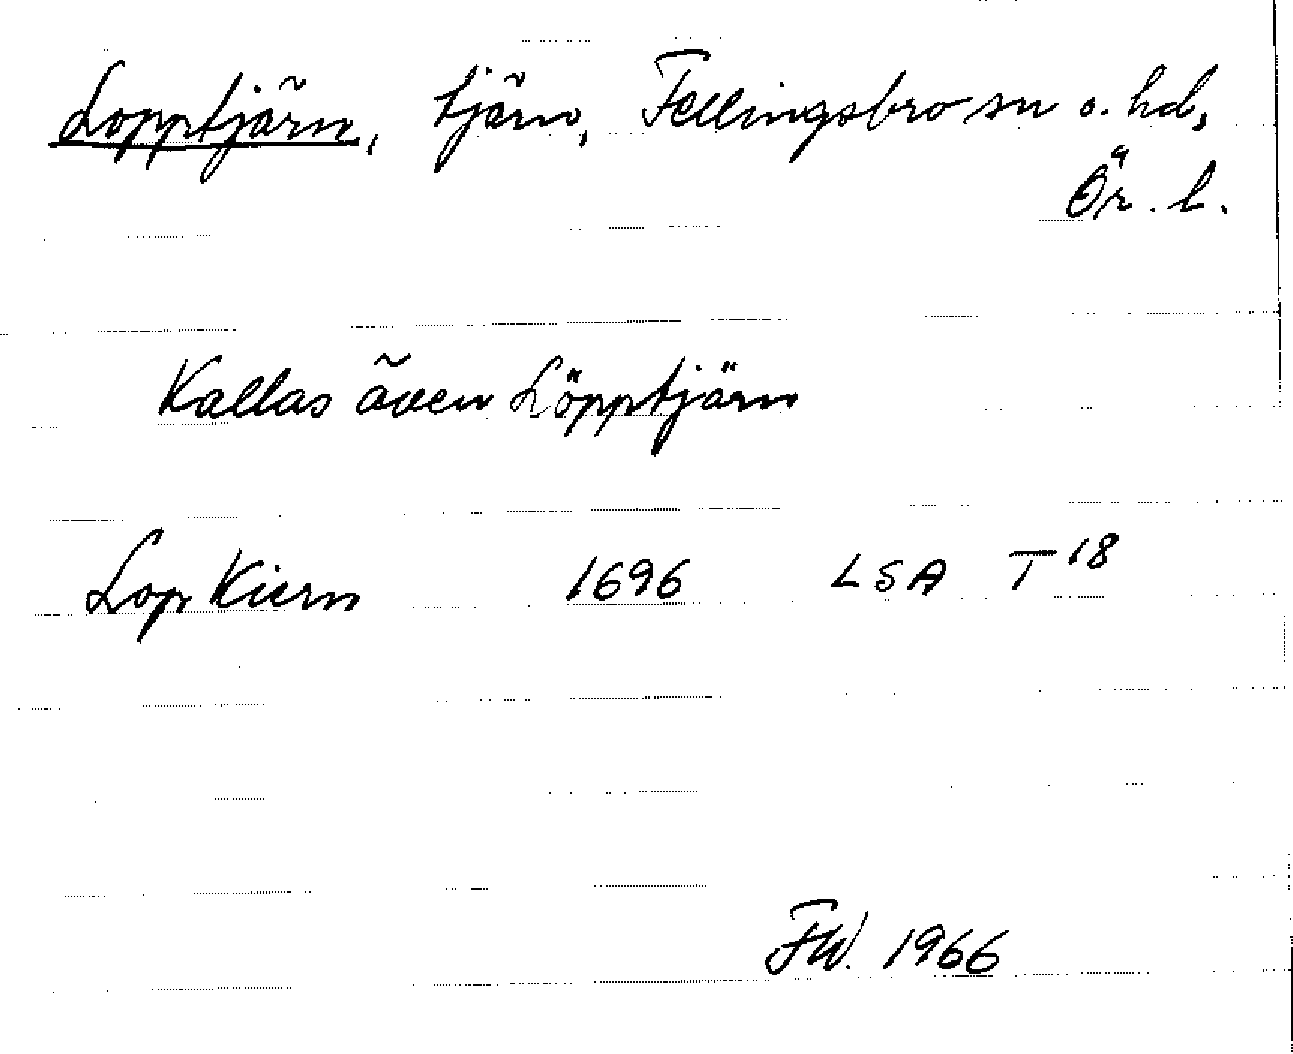 Lopptjärn, tjärn, Fellingsbro sn o. hd,
Ör. l.
Kallas även Löpptjärn
Lop Kiern 1696 LSA T 18
FW. 1966